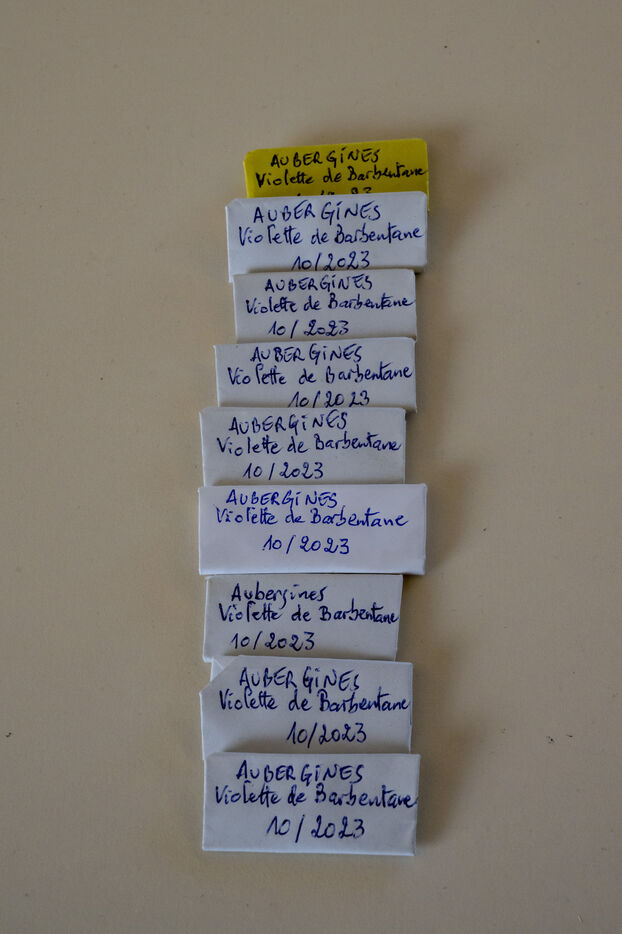 AUBERGINES
Violette de Barbentane
10/2023
AUBERGINES
Violette de Barbentane
10/2023
AUBERGINES
Violette de Barbentane
10/2023
AUBERGINES
Violette de Barbentane
10/2023
AUBERGINES
Violette de Barbentane
10/2023
AUBERGINES
Violette de Barbentane
10/2023
Aubergines
Violette de Barbentane
10/2023
AUBERGINES
Violette de Barbentane
10/2023
AUBERGINES
Violette de Barbentane
10/2023